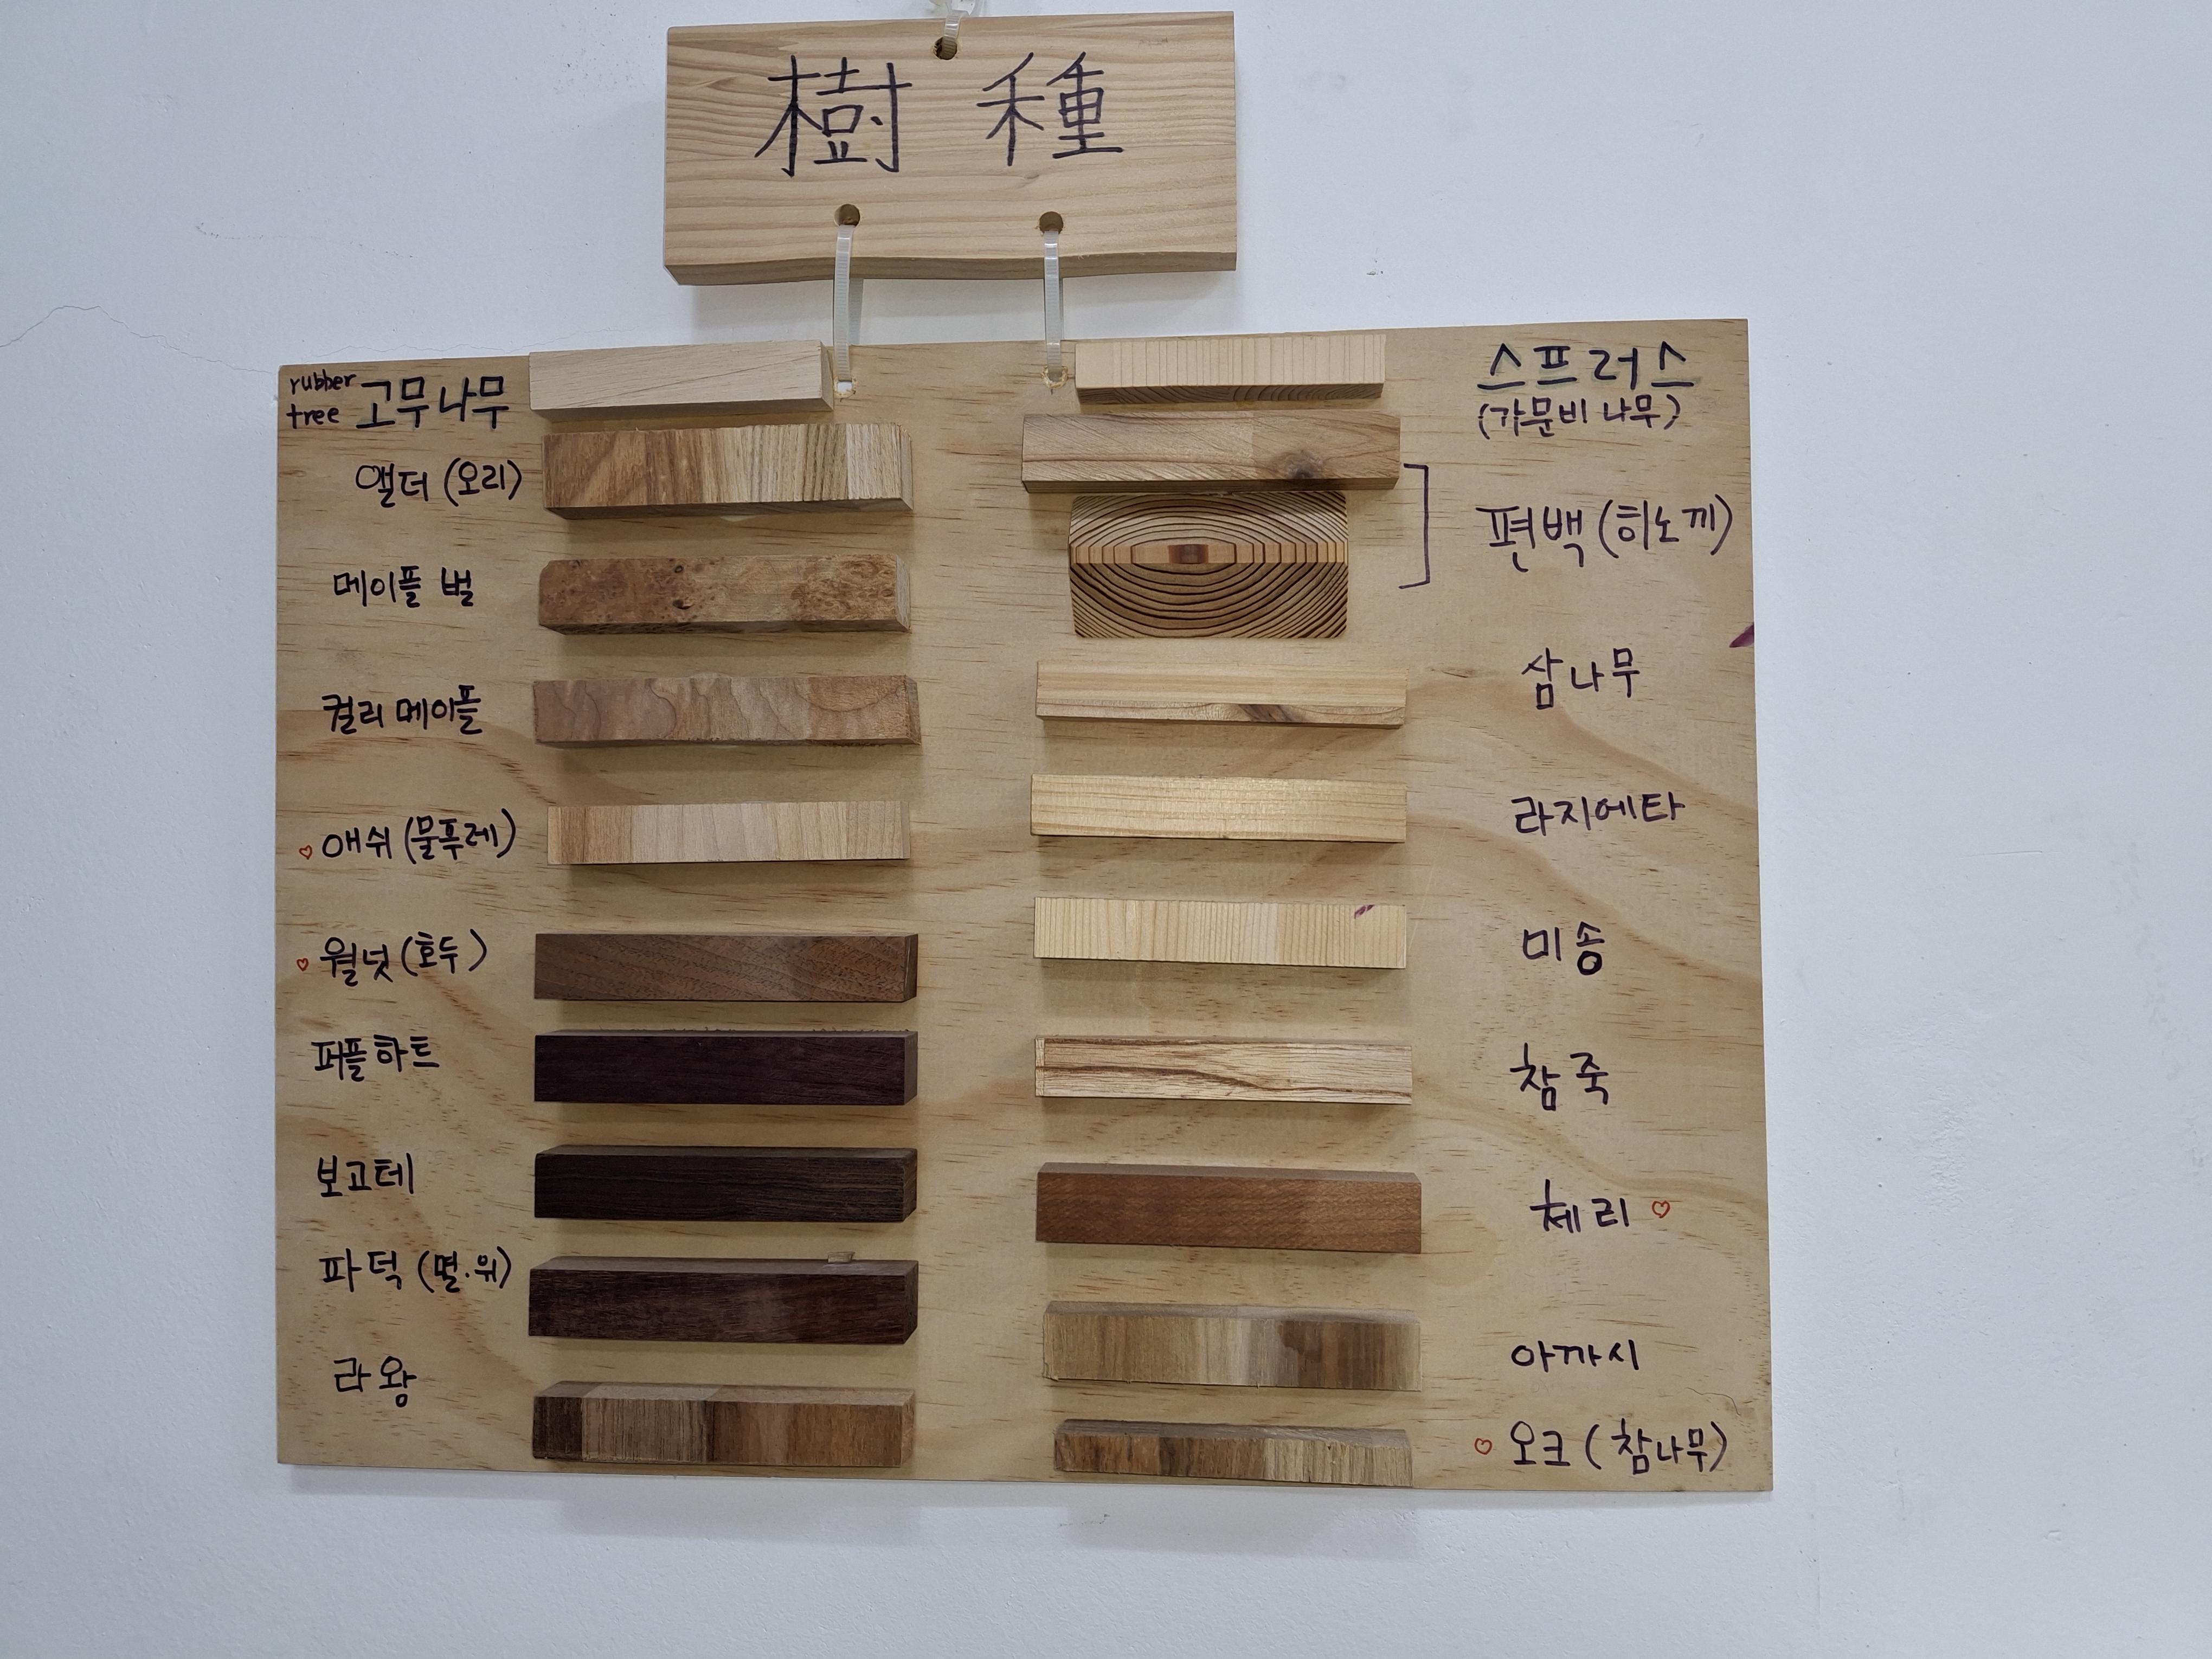 樹 種
rubber
tree 고무나무
앨더 (오리)
메이플 벌
컬리 메이플
♡ 애쉬 (물푸레)
♡ 월넛 (호두)
퍼플하트
보고테
파덕 (떨.위)
라왕
스프러스
(가문비 나무)
편백 (히노끼)
삼나무
라지에타
미송
참죽
체리 ♡
아까시
♡ 오크 ( 참나무)